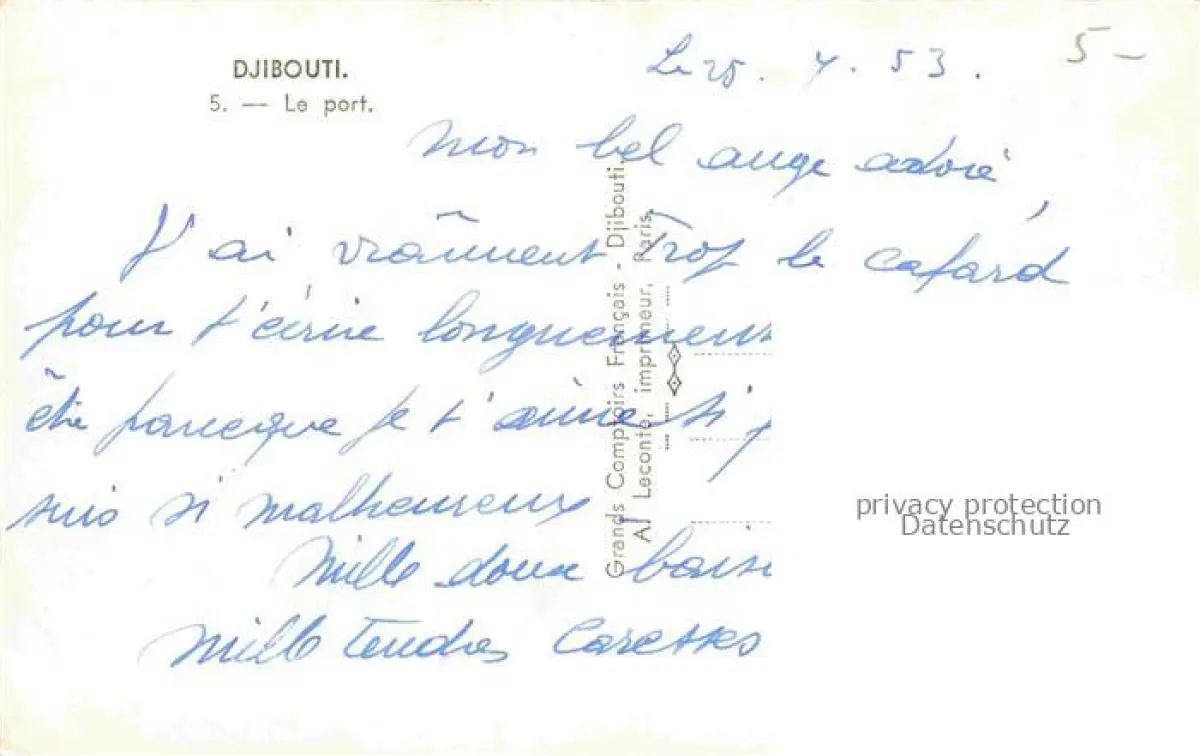 DJIBOUTI.
5. — Le port.
Le 25. 4. 53.
5 —
mon bel ange adoré,
J'ai vraiment trop le cafard
pour t'écrire longuement
être parceque je t'aime si
suis si malheureux
Mille doux
Mille tendres caresses
Grands Comptoirs Français - Djibouti.
Al Leconte, imprimeur, Paris.
privacy protection
Datenschutz